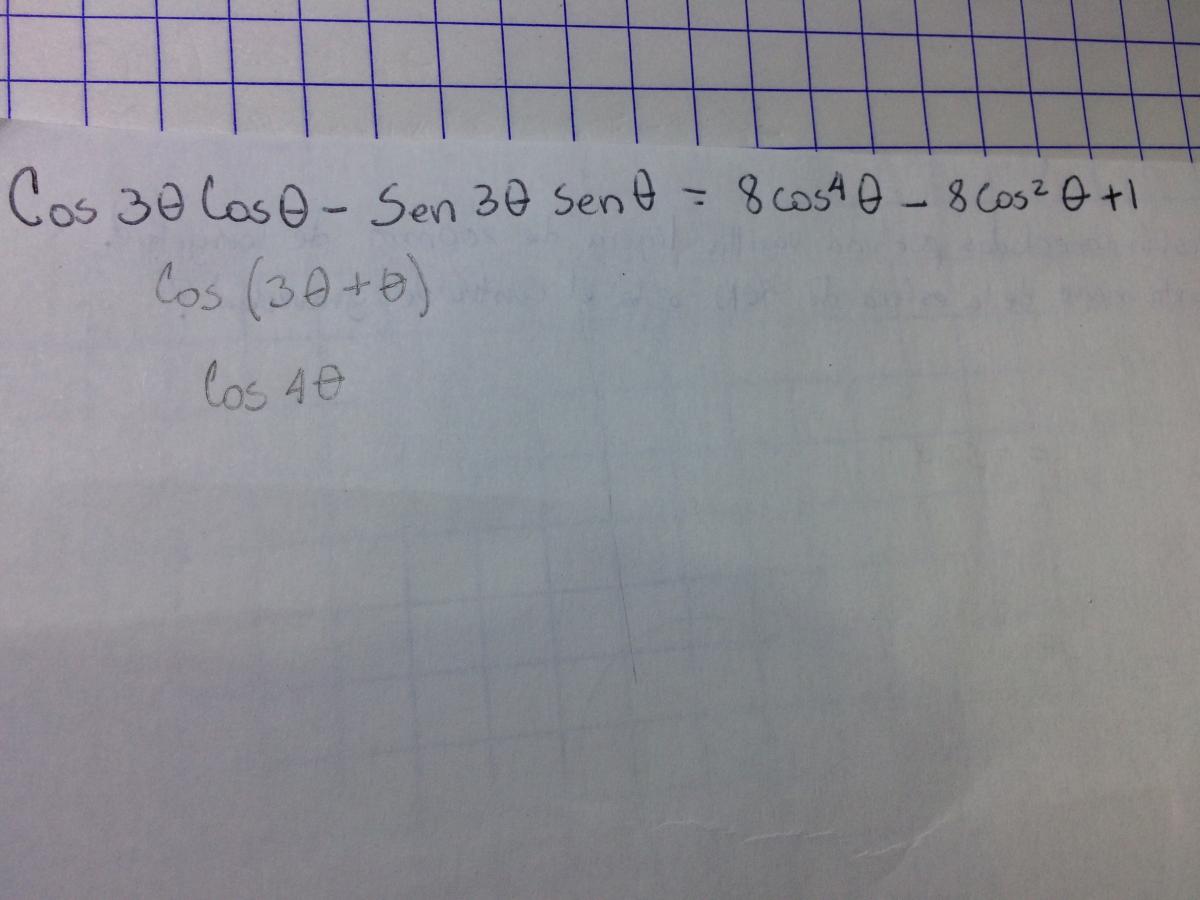 Cos 3θ Cosθ - Sen 3θ senθ = 8cos⁴θ - 8cos²θ+1
Cos (3θ+θ)
Cos 4θ